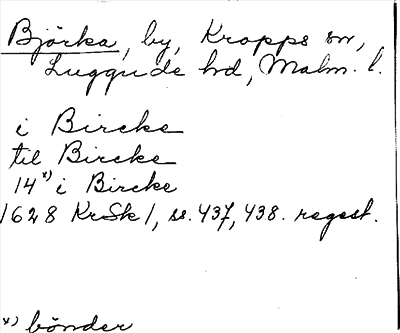 Björka, by, Kropps sn,
Luggude hd, Malm. l.
i Bircke
til Bircke
14 x) i Bircke
1628 KrSk 1, ss. 437, 438. regest.
x) bönder